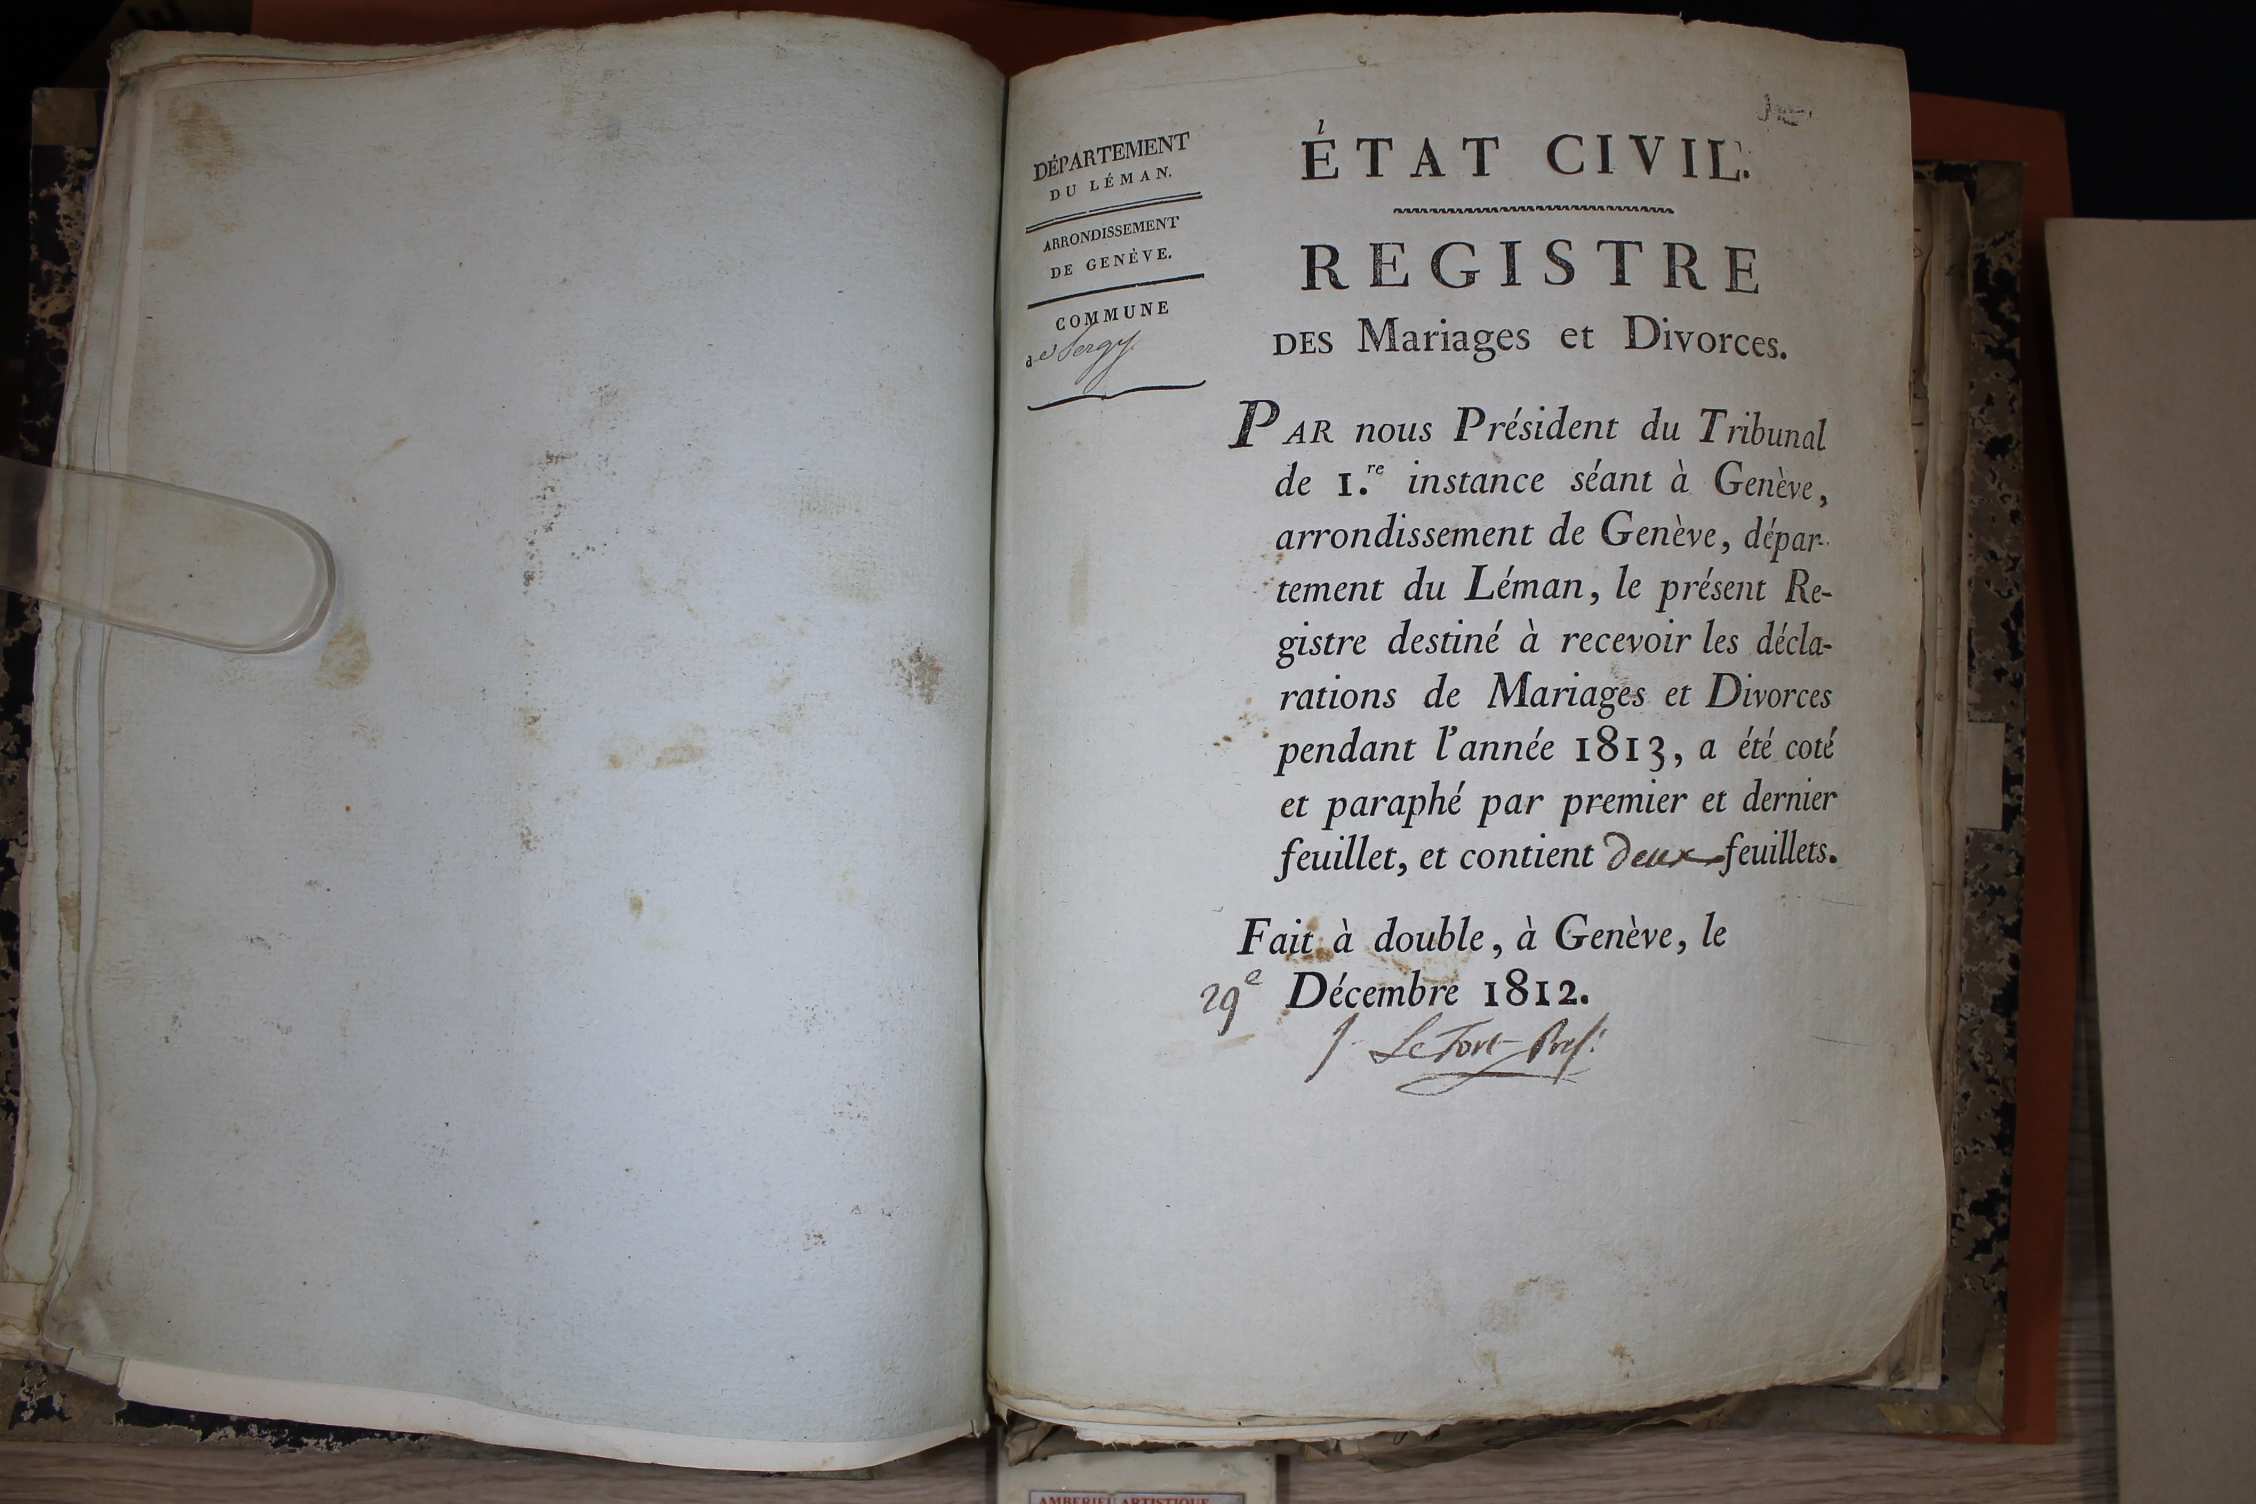 DÉPARTEMENT
DU LÉMAN.
ARRONDISSEMENT
DE GENÈVE.
COMMUNE
de Sergy.
ÉTAT CIVIL.
REGISTRE
DES Mariages et Divorces.
PAR nous Président du Tribunal
de 1.re instance séant à Genève,
arrondissement de Genève, dépar-
tement du Léman, le présent Re-
gistre destiné à recevoir les décla-
rations de Mariages et Divorces
pendant l'année 1813, a été coté
et paraphé par premier et dernier
feuillet, et contient deux feuillets.
Fait à double, à Genève, le
29e Décembre 1812.
J. LeFort Pres.
AMBERIEU ARTISTIQUE